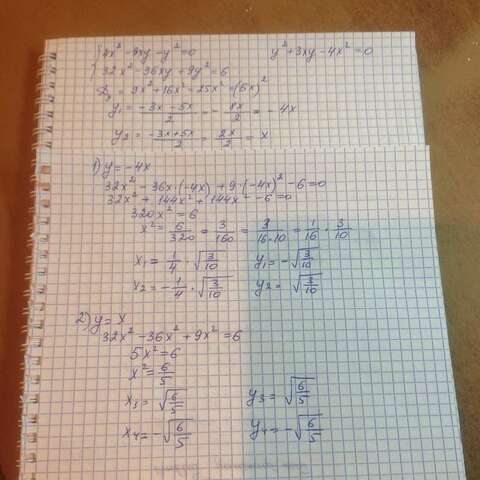 4x² - 3xy - y² = 0 y² + 3xy - 4x² = 0
32x² - 36xy + 9y² = 6
D = 9x² + 16x² = 25x² = (5x)²
y₁ = (-3x - 5x)/2 = -8x/2 = -4x
y₂ = (-3x + 5x)/2 = 2x/2 = x
1) y = -4x
32x² - 36x·(-4x) + 9·(-4x)² - 6 = 0
32x² + 144x² + 144x² - 6 = 0
320x² = 6
x² = 6/320 = 3/160 = 3/(16·10) = 1/16 · 3/10
x₁ = 1/4 · √(3/10) y₁ = -√(3/10)
x₂ = -1/4 · √(3/10) y₂ = √(3/10)
2) y = x
32x² - 36x² + 9x² = 6
5x² = 6
x² = 6/5
x₃ = √(6/5) y₃ = √(6/5)
x₄ = -√(6/5) y₄ = -√(6/5)